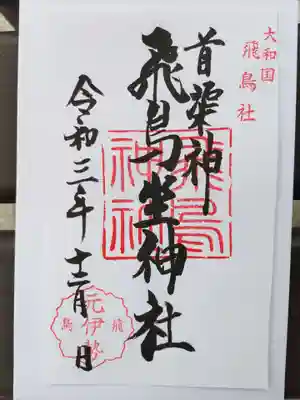 大和国
飛鳥社
首渠神
飛鳥坐神社
令和三年十二月 日
元伊勢
飛鳥